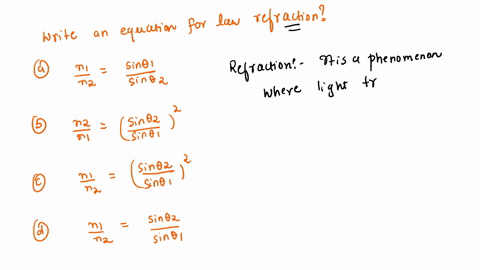 Write an equation for law refraction?
ⓐ n1/n2 = sinθ1/sinθ2
ⓑ n2/n1 = (sinθ2/sinθ1)²
ⓒ n1/n2 = (sinθ2/sinθ1)²
ⓓ n1/n2 = sinθ2/sinθ1
Refraction:- It is a phenomenon
where light tr